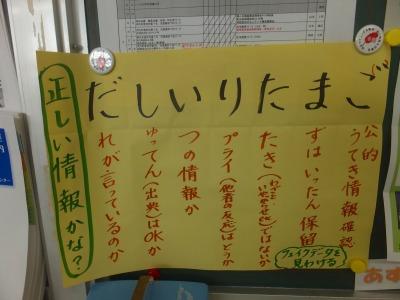 だしいりたまご
正しい情報かな?
れが言っているのか
ゅってん(出典)はOKか
つの情報か
プライ(他者の反応)はどうか
たき()ではないか
ずはいったん保留
フェイクデータを
見わける
公的
うてき情報確認